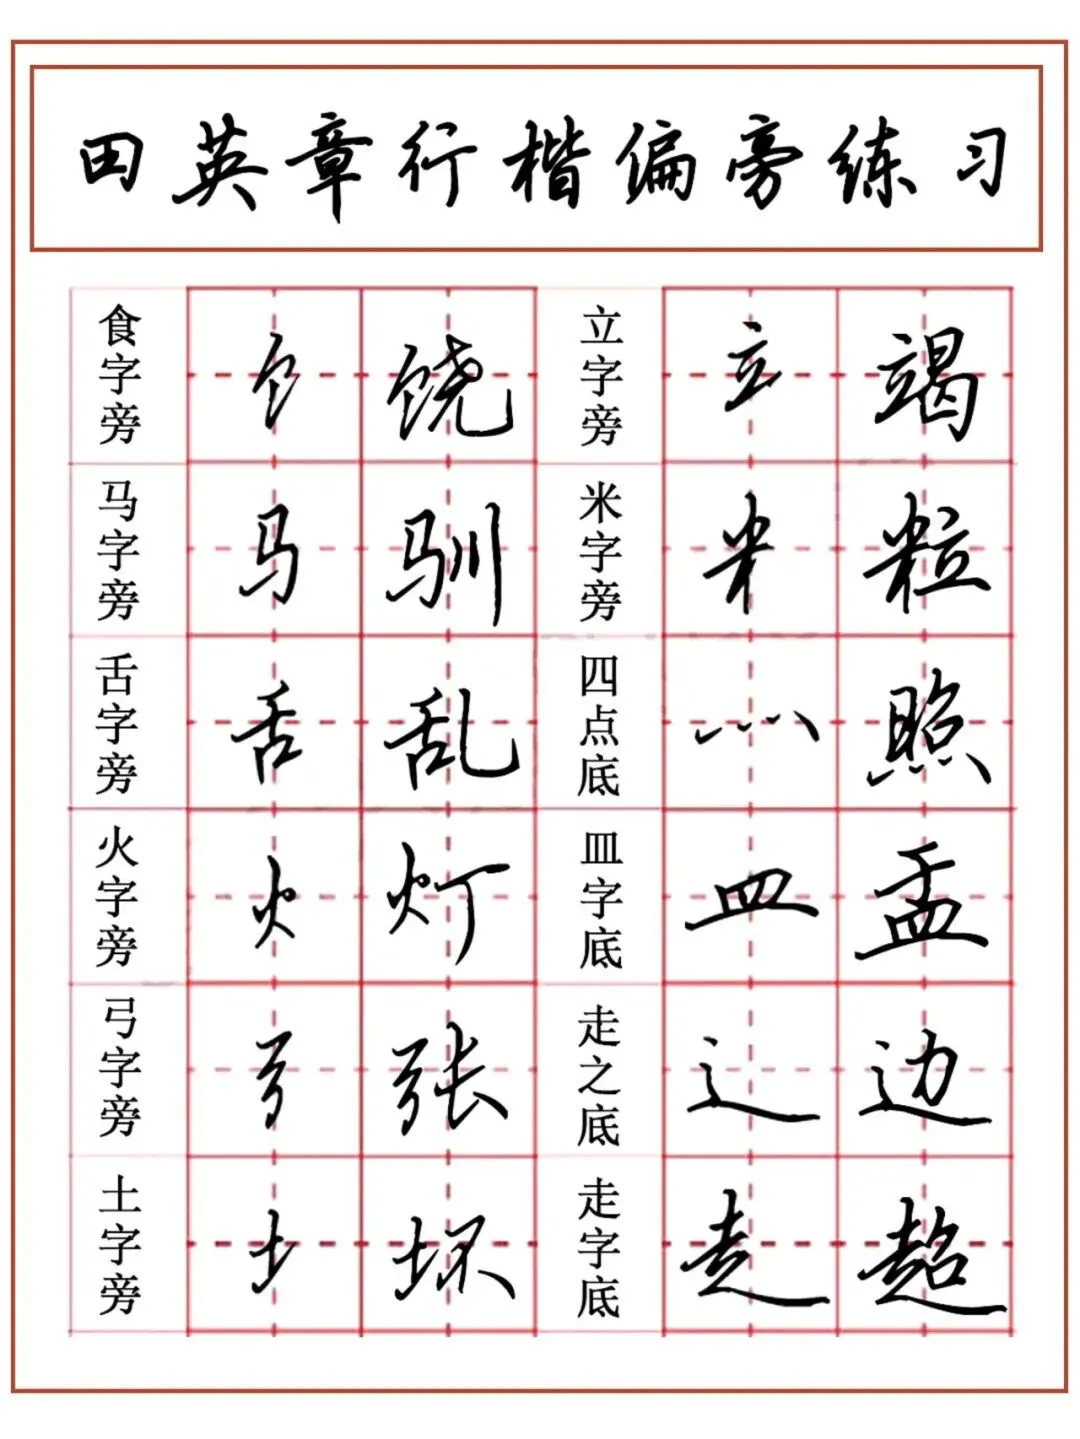 田英章行楷偏旁练习
食字旁 饣 饶 立字旁 立 竭
马字旁 马 驯 米字旁 米 粒
舌字旁 舌 乱 四点底 灬 照
火字旁 火 灯 皿字底 皿 盂
弓字旁 弓 张 走之底 辶 边
土字旁 土 坏 走字底 走 超